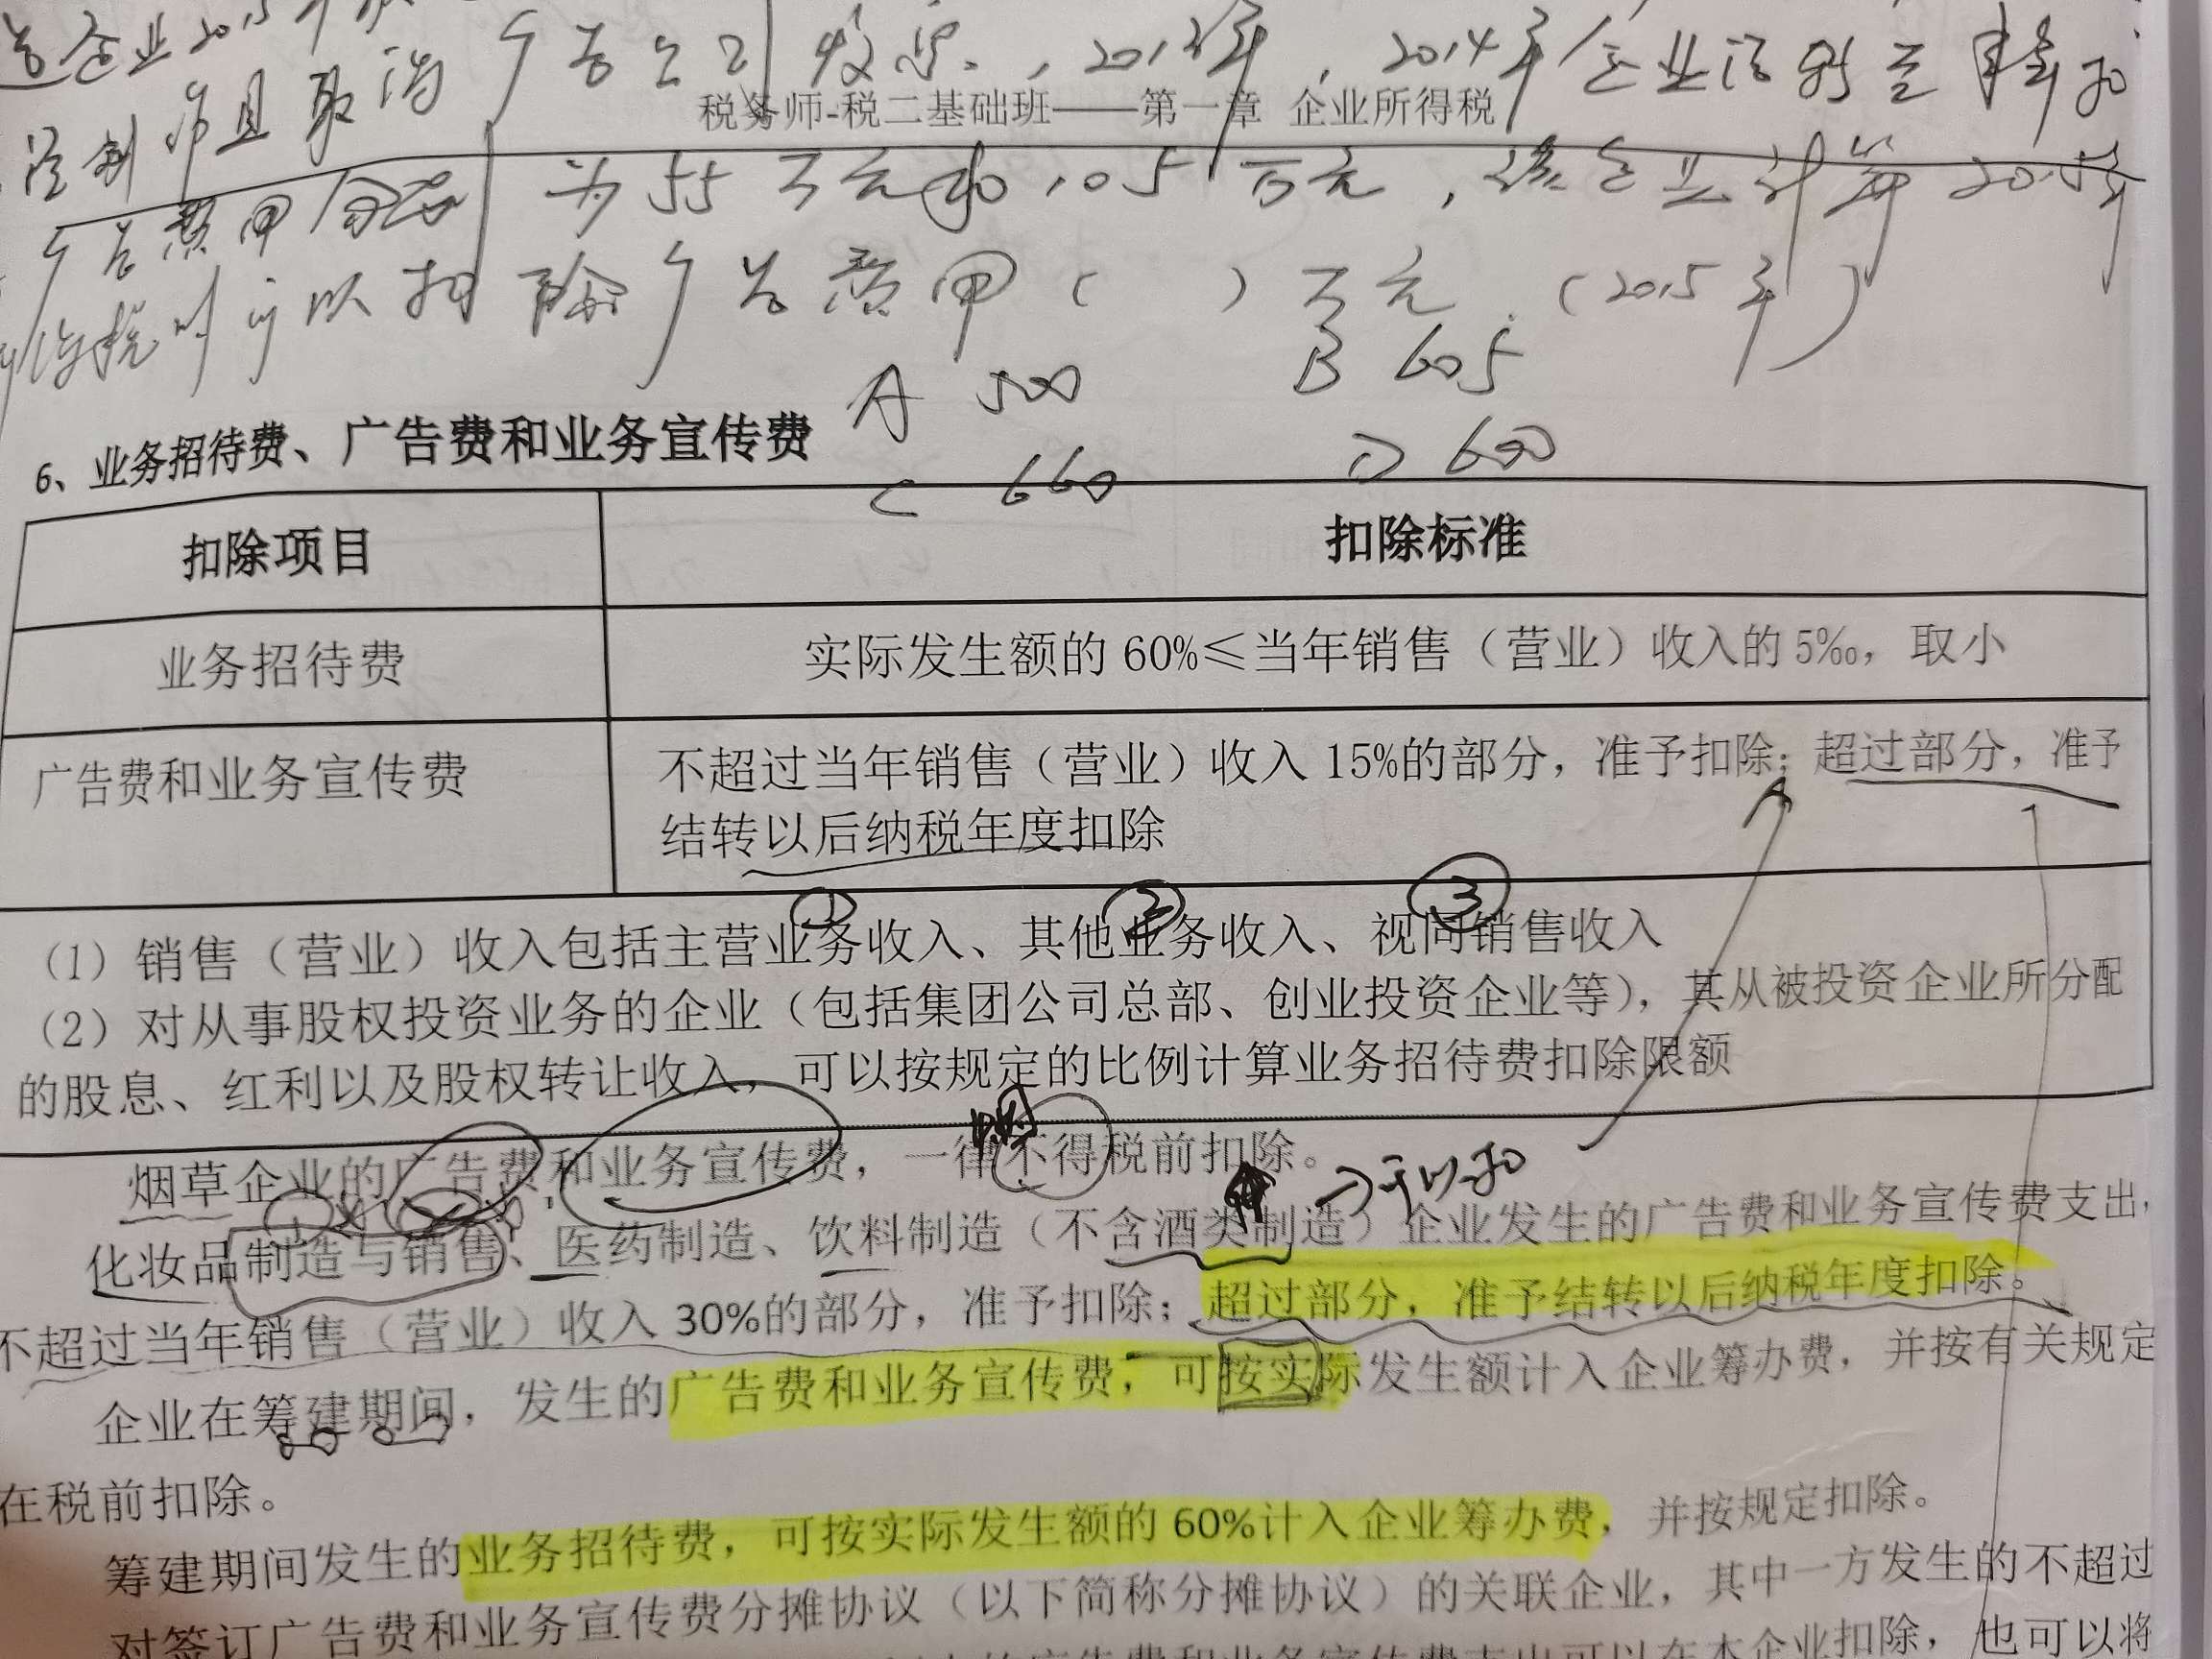 造企业2015年
广告公司收票,2013年,2014年企业结转至本年扣
税务师-税二基础班——第一章 企业所得税
制作且取得
广告费用分别为55万元和105万元,该企业计算2015年
所得税时可以扣除广告费用( )万元.(2015年)
A 500 B 605
C 660 D 600
6、业务招待费、广告费和业务宣传费
扣除项目 扣除标准
业务招待费 实际发生额的 60%≤当年销售(营业)收入的 5‰,取小
广告费和业务宣传费 不超过当年销售(营业)收入 15%的部分,准予扣除;超过部分,准予
结转以后纳税年度扣除
① ② ③
(1)销售(营业)收入包括主营业务收入、其他业务收入、视同销售收入
(2)对从事股权投资业务的企业(包括集团公司总部、创业投资企业等),其从被投资企业所分配
的股息、红利以及股权转让收入,可以按规定的比例计算业务招待费扣除限额
烟草企业的广告费和业务宣传费,一律不得税前扣除。
→予以扣
化妆品制造与销售、医药制造、饮料制造(不含酒类制造)企业发生的广告费和业务宣传费支出,
不超过当年销售(营业)收入 30%的部分,准予扣除;超过部分,准予结转以后纳税年度扣除。
企业在筹建期间,发生的广告费和业务宣传费,可按实际发生额计入企业筹办费,并按有关规定
在税前扣除。
筹建期间发生的业务招待费,可按实际发生额的 60%计入企业筹办费,并按规定扣除。
对签订广告费和业务宣传费分摊协议(以下简称分摊协议)的关联企业,其中一方发生的不超过
的广告费和业务宣传费支出可以在本企业扣除,也可以将